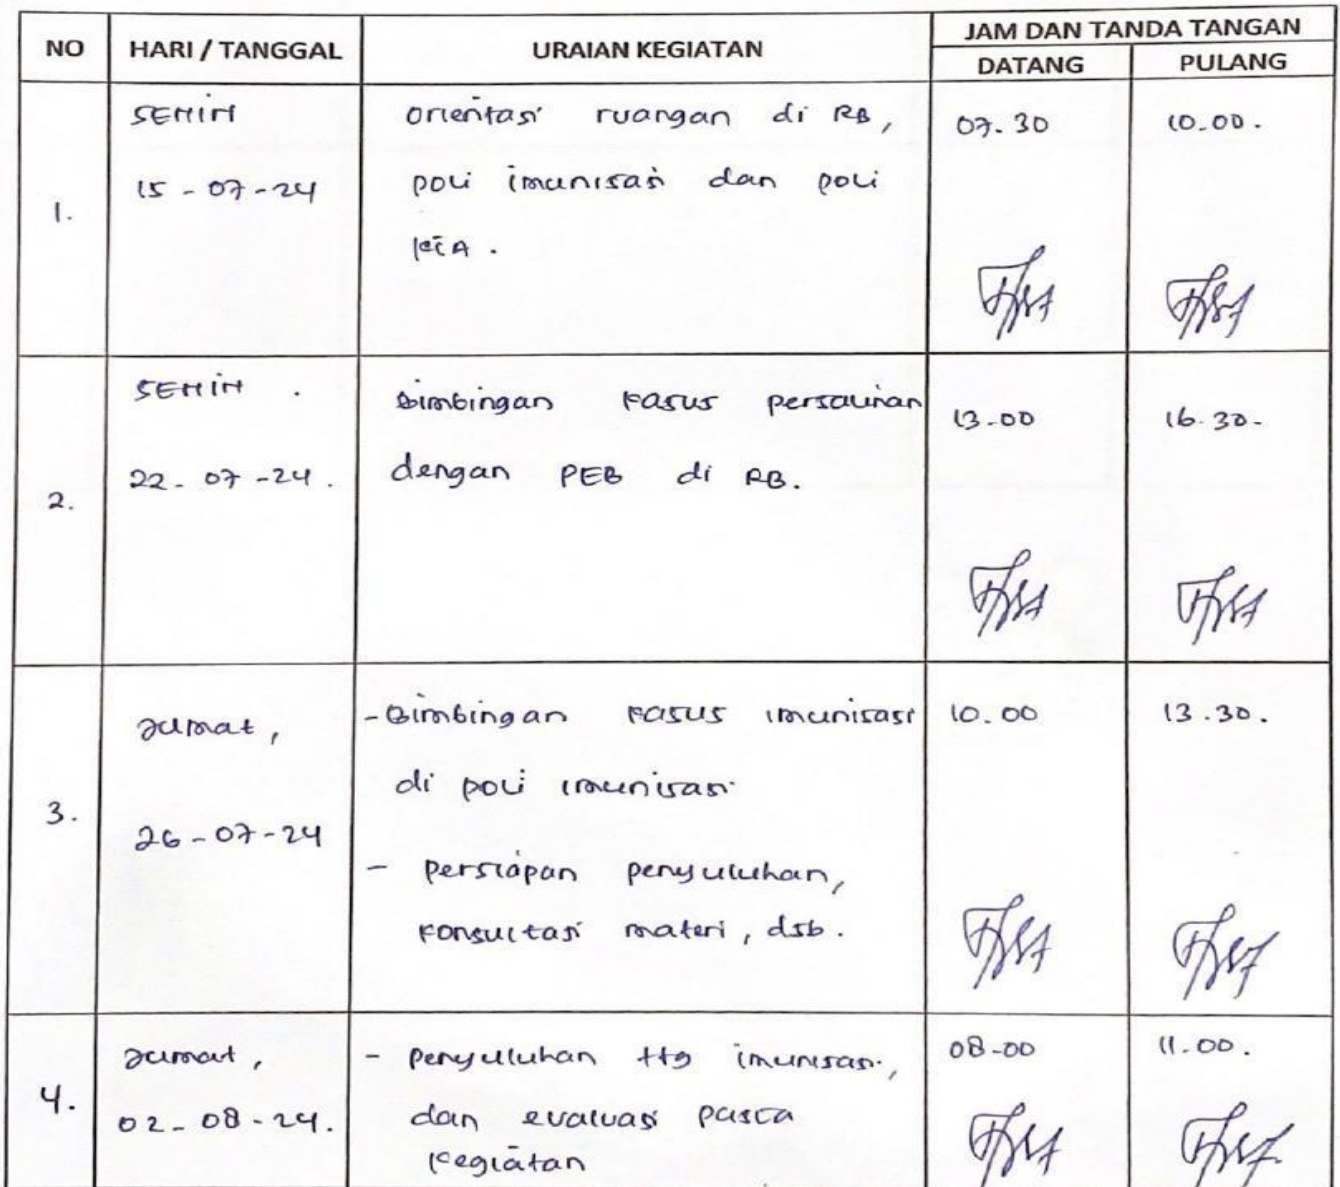 NO HARI / TANGGAL URAIAN KEGIATAN JAM DAN TANDA TANGAN
DATANG PULANG
1. SENIN
15 - 07 - 24
Orientasi ruangan di RB,
poli imunisasi dan poli
KIA.
07.30 10.00.
2. SENIN.
22 - 07 - 24.
Bimbingan kasus persalinan
dengan PEB di RB.
13.00 16.30.
3. Jumat,
26 - 07 - 24
- Bimbingan kasus imunisasi
di poli imunisasi
- Persiapan penyuluhan,
konsultasi materi, dsb.
10.00 13.30.
4. Jumat,
02 - 08 - 24.
- Penyuluhan ttg imunisasi,
dan evaluasi pasca
kegiatan
08.00 11.00.